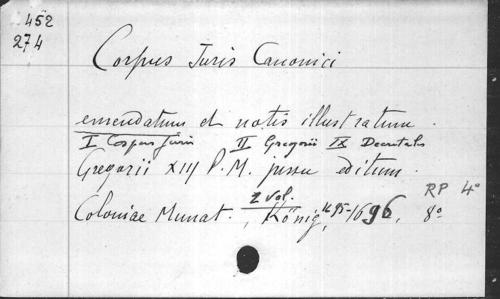 452
274
Corpus Juris Canonici
emendatum et notis illustratum.
I Corpus Juris II Gregorii IX Decretales
Gregorii XIII P. M. jussu editum.
RP 4°
2 vol.
Coloniae Munat., König, 1695-1696, 8°